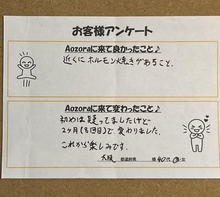 お客様アンケート
Aozoraに来て良かったこと♪
近くにホルモン焼きがあること。
Aozoraに来て変わったこと♪
初めは疑ってましたけど
2ヶ月(8回目)で変わりました。
これから楽しみです。
大阪 都道府県 様 40代